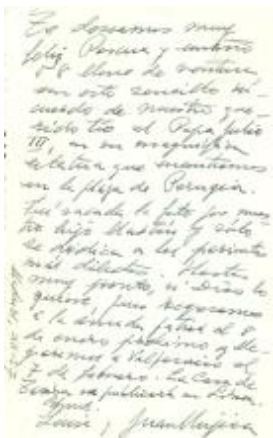 Te deseamos muy
feliz Pascua y
año lleno de ventura,
con este sencillo re-
cuerdo de nuestro que-
rido tío el Papa Julio
III, en su magnífica
estatua que encontramos
en la plaza de Perugia.
Fué sacada la foto por nues-
tro hijo y sólo
se dedica a los parientes
más dilectos. Hasta
muy pronto, si Dios lo
quiere, pues regresamos
a la 8
de enero próximo y lle-
garemos a Valparaíso el
7 de febrero. La Casa de
se publicará en
Louise y Juan Mujica